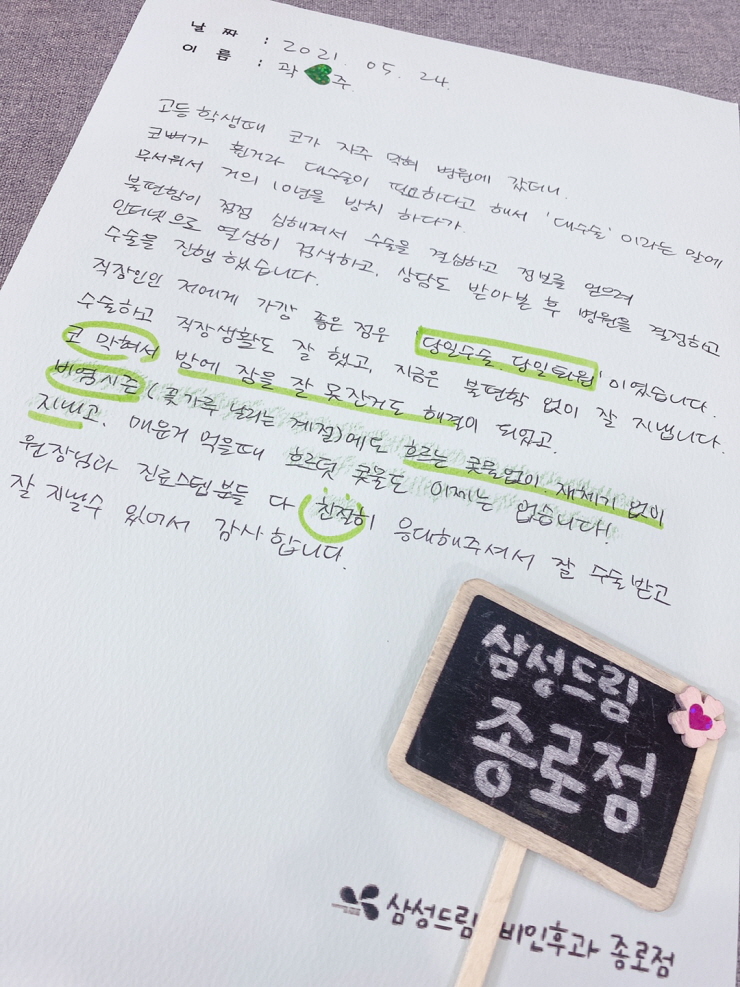 날 짜 : 2021. 05. 24.
이 름 : 곽 주
고등학생때 코가 자주 막혀 병원에 갔더니.
코뼈가 휜거라 대수술이 필요하다고 해서 '대수술' 이라는 말에
무서워서 거의 10년을 방치 하다가.
불편함이 점점 심해져서 수술을 결심하고 정보를 얻으려
인터넷으로 열심히 검색하고, 상담도 받아본 후 병원을 결정하고
수술을 진행 했습니다.
직장인인 저에게 가장 좋은 점은 '당일수술. 당일퇴원' 이였습니다.
수술하고 직장생활도 잘 했고, 지금은 불편함 없이 잘 지냅니다.
코 막혀서 밤에 잠을 잘 못잔거도 해결이 되었고.
비염시즌(꽃가루 날리는 계절)에도 흐르는 콧물없이. 재채기 없이
지내고. 매운거 먹을때 흐르던 콧물도 이제는 없습니다!
원장님과 진료스텝분들 다 친절히 응대해주셔서 잘 수술받고
잘 지낼수 있어서 감사합니다.
삼성드림
종로점
삼성드림 비인후과 종로점